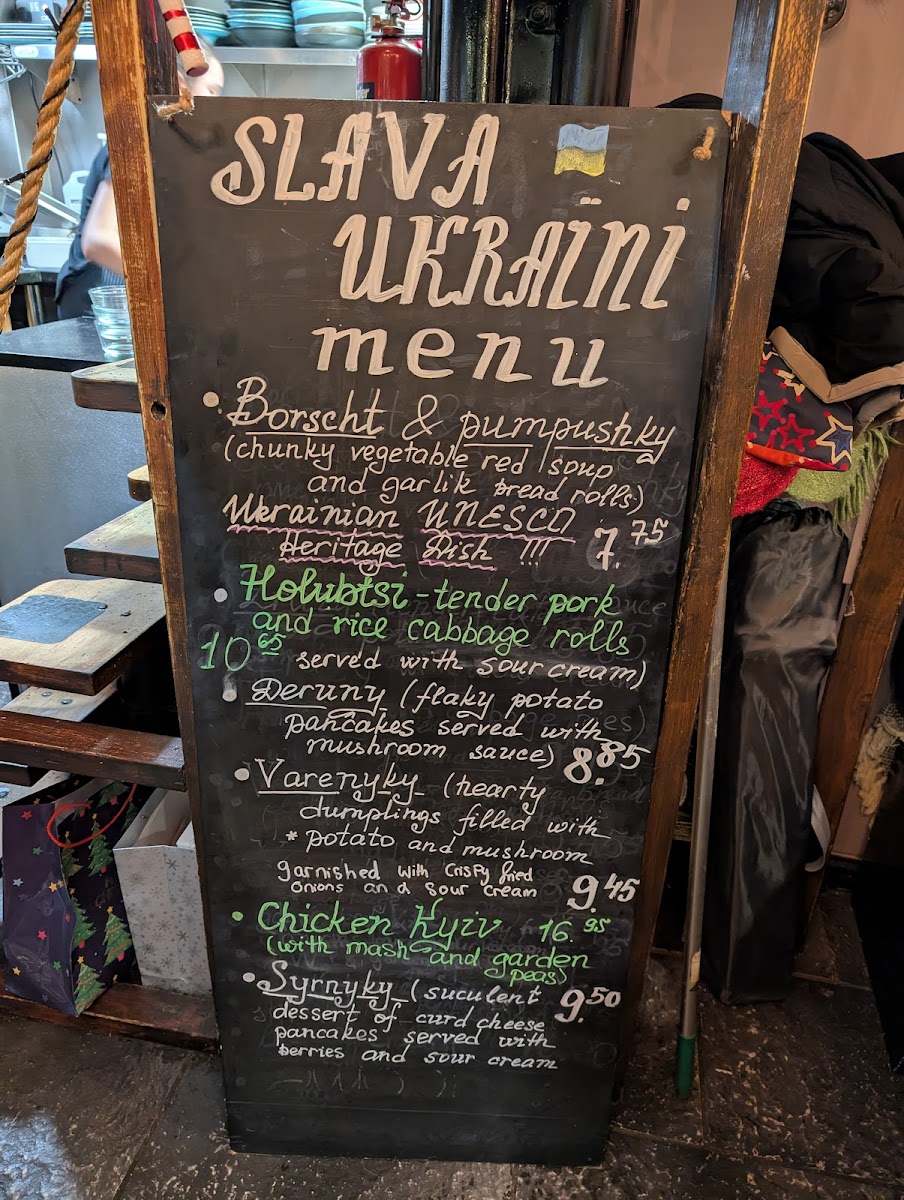 SLAVA
UKRAÏNI
menu
Borscht & pumpushky
(chunky vegetable red soup
and garlik bread rolls)
Ukrainian UNESCO
Heritage Dish !!! 7.75
Holubtsi - tender pork
and rice cabbage rolls
10 65 served with sour cream)
Deruny (flaky potato
pancakes served with
mushroom sauce) 8.85
Varenyky (hearty
dumplings filled with
* potato and mushroom
garnished with crispy fried
onions and sour cream 9 45
Chicken Kyiv 16.95
(with mash and garden
peas)
Syrnyky (suculent 9.50
dessert of curd cheese
pancakes served with
berries and sour cream